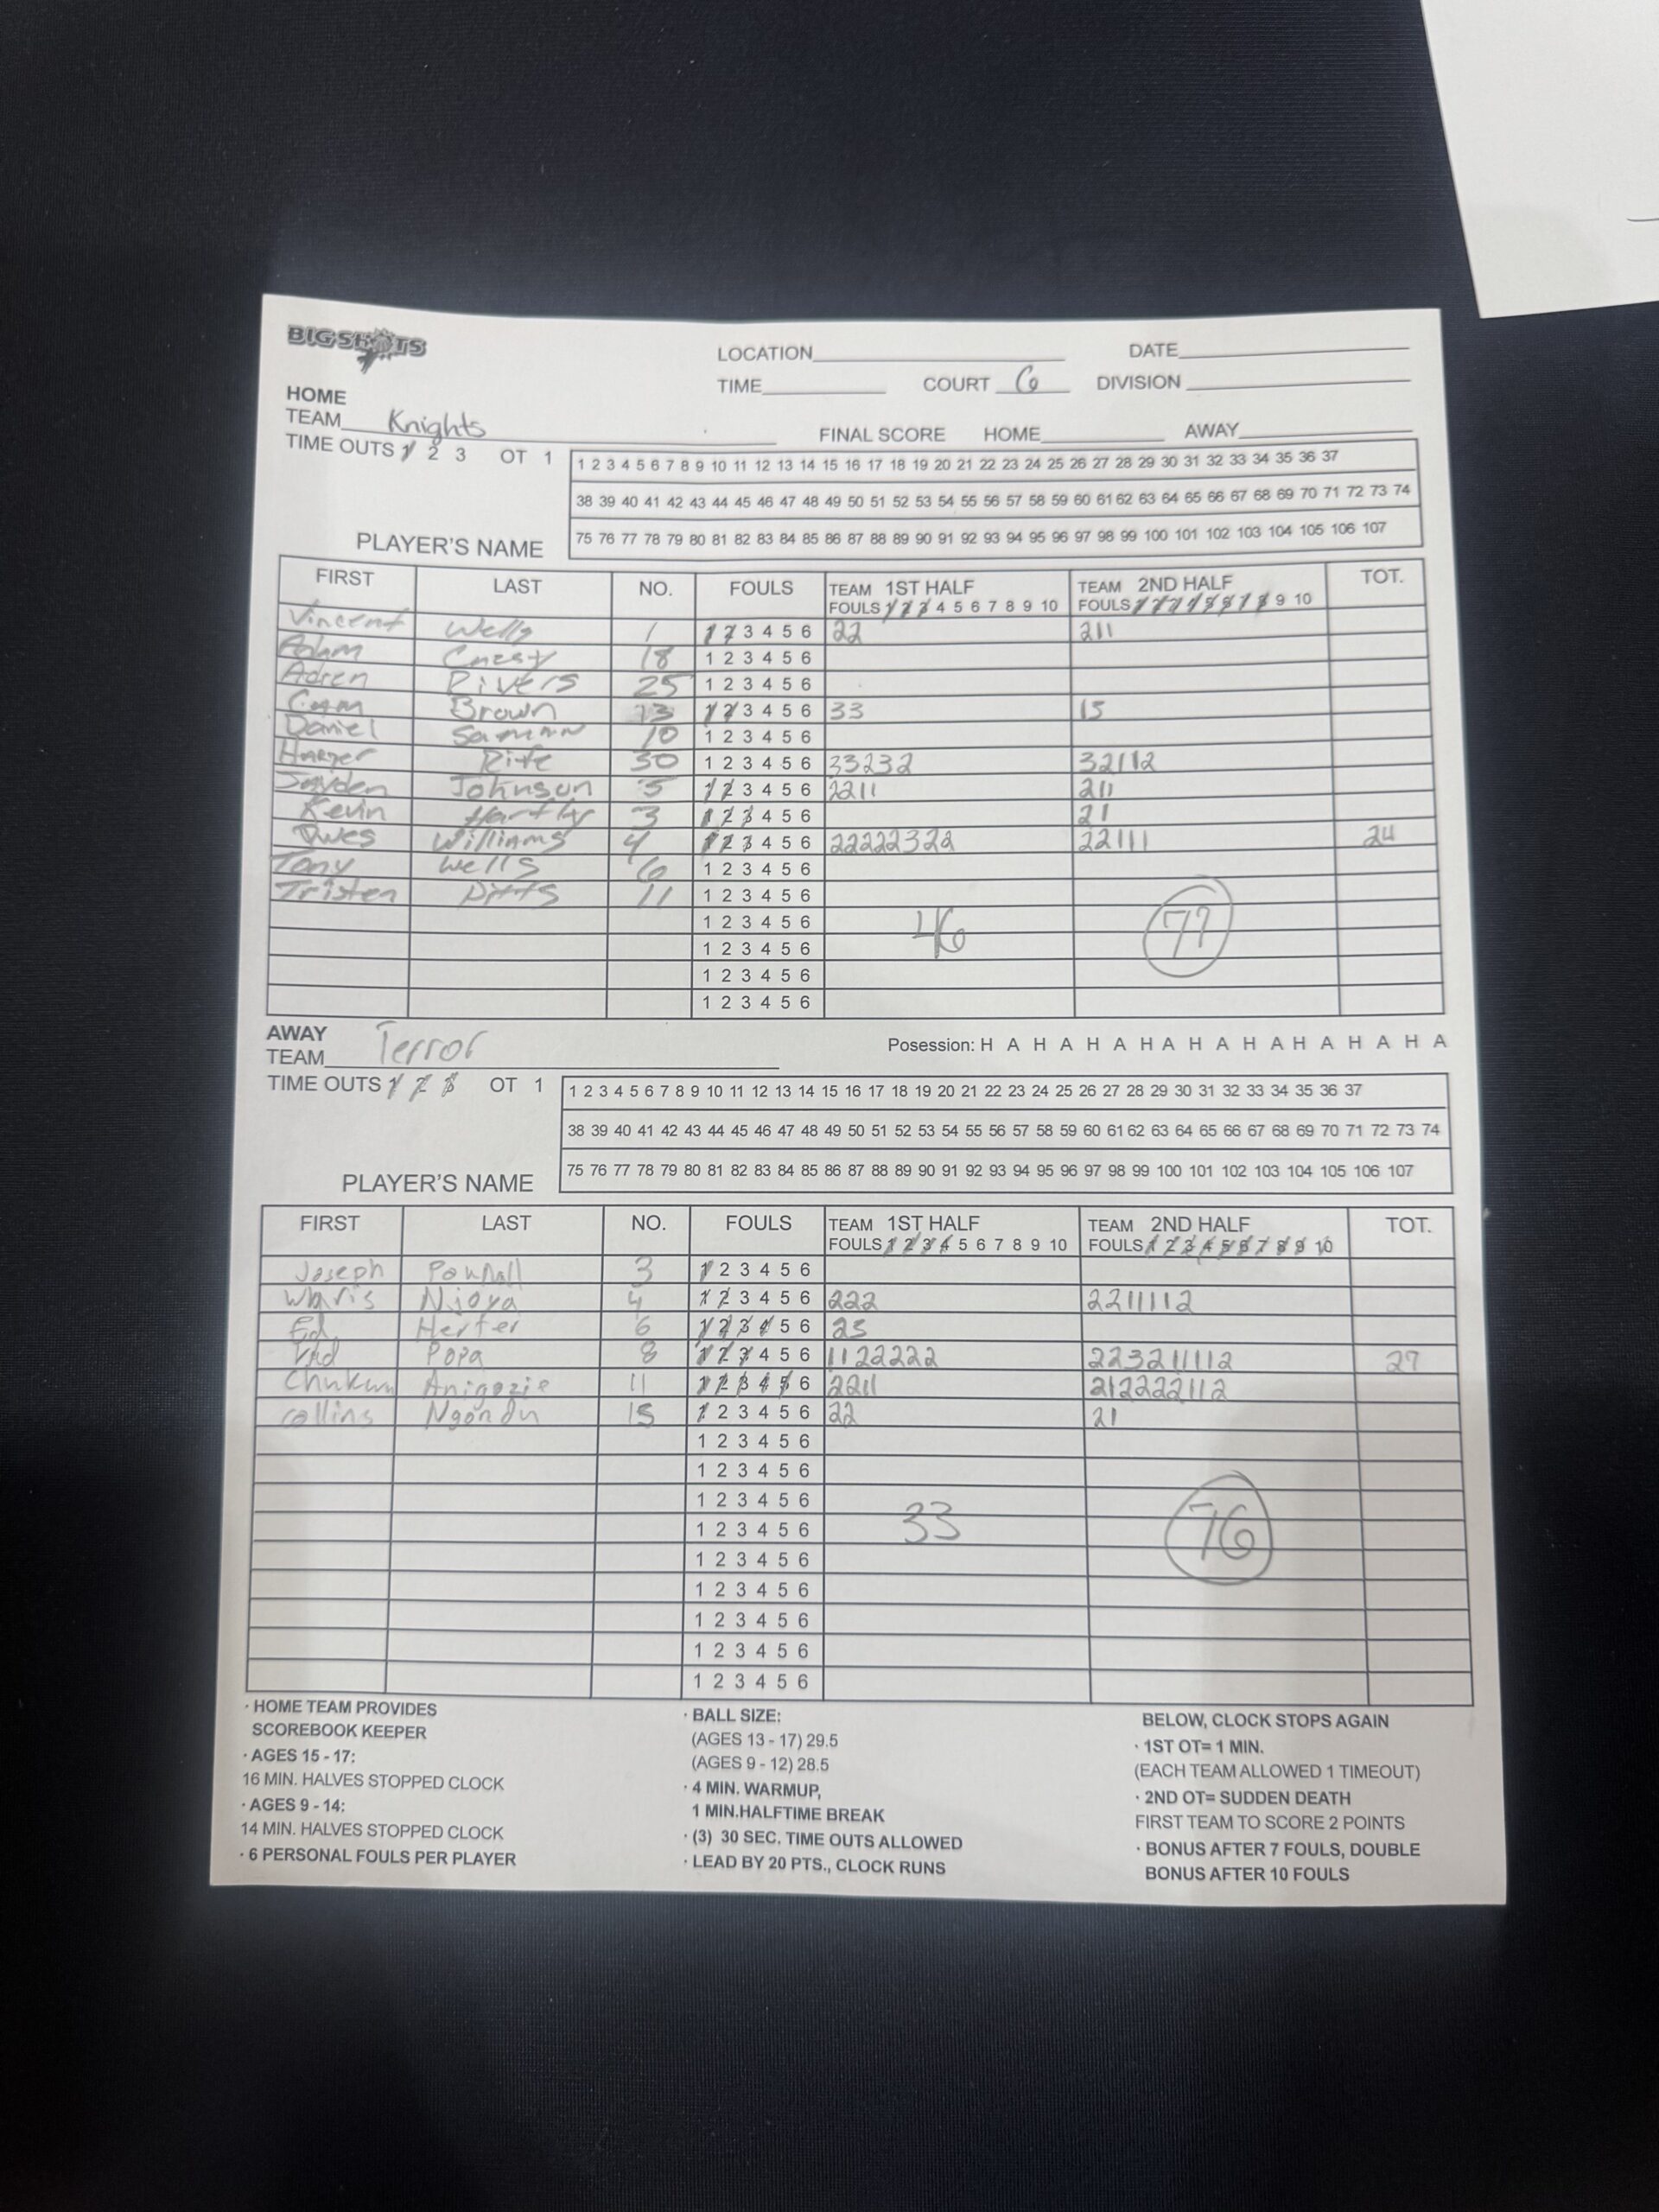 BIG SHOTS
LOCATION DATE
TIME COURT 6 DIVISION
HOME
TEAM Knights
FINAL SCORE HOME AWAY
TIME OUTS 1 2 3 OT 1
1 2 3 4 5 6 7 8 9 10 11 12 13 14 15 16 17 18 19 20 21 22 23 24 25 26 27 28 29 30 31 32 33 34 35 36 37
38 39 40 41 42 43 44 45 46 47 48 49 50 51 52 53 54 55 56 57 58 59 60 61 62 63 64 65 66 67 68 69 70 71 72 73 74
75 76 77 78 79 80 81 82 83 84 85 86 87 88 89 90 91 92 93 94 95 96 97 98 99 100 101 102 103 104 105 106 107
PLAYER'S NAME
FIRST LAST NO. FOULS TEAM 1ST HALF TEAM 2ND HALF TOT.
FOULS 1 2 3 4 5 6 7 8 9 10 FOULS 1 2 3 4 5 6 7 8 9 10
Vincent Wells 1 1 2 3 4 5 6 22 211
18 1 2 3 4 5 6
Adren Rivers 25 1 2 3 4 5 6
Brown 13 1 2 3 4 5 6 33 15
Daniel 10 1 2 3 4 5 6
Harper 30 1 2 3 4 5 6 33232 32112
Jayden Johnson 5 1 2 3 4 5 6 2211 211
Kevin 3 1 2 3 4 5 6 21
Williams 4 1 2 3 4 5 6 22222322 22111 24
Tony Wells 6 1 2 3 4 5 6
Tristen Pitts 11 1 2 3 4 5 6
1 2 3 4 5 6 46 77
1 2 3 4 5 6
1 2 3 4 5 6
1 2 3 4 5 6
AWAY
TEAM Terror
Posession: H A H A H A H A H A H A H A H A H A
TIME OUTS 1 2 3 OT 1
1 2 3 4 5 6 7 8 9 10 11 12 13 14 15 16 17 18 19 20 21 22 23 24 25 26 27 28 29 30 31 32 33 34 35 36 37
38 39 40 41 42 43 44 45 46 47 48 49 50 51 52 53 54 55 56 57 58 59 60 61 62 63 64 65 66 67 68 69 70 71 72 73 74
75 76 77 78 79 80 81 82 83 84 85 86 87 88 89 90 91 92 93 94 95 96 97 98 99 100 101 102 103 104 105 106 107
PLAYER'S NAME
FIRST LAST NO. FOULS TEAM 1ST HALF TEAM 2ND HALF TOT.
FOULS 1 2 3 4 5 6 7 8 9 10 FOULS 1 2 3 4 5 6 7 8 9 10
Joseph 3 1 2 3 4 5 6
Njoya 4 1 2 3 4 5 6 222 2211112
Ed Herfer 6 1 2 3 4 5 6 23
Vlad Popa 8 1 2 3 4 5 6 1122222 223211112 27
Anigozie 11 1 2 3 4 5 6 2211 212222112
collins Ngondu 15 1 2 3 4 5 6 22 21
1 2 3 4 5 6
1 2 3 4 5 6
1 2 3 4 5 6
1 2 3 4 5 6 33 76
1 2 3 4 5 6
1 2 3 4 5 6
1 2 3 4 5 6
1 2 3 4 5 6
1 2 3 4 5 6
· HOME TEAM PROVIDES
SCOREBOOK KEEPER
· AGES 15 - 17:
16 MIN. HALVES STOPPED CLOCK
· AGES 9 - 14:
14 MIN. HALVES STOPPED CLOCK
· 6 PERSONAL FOULS PER PLAYER
· BALL SIZE:
(AGES 13 - 17) 29.5
(AGES 9 - 12) 28.5
· 4 MIN. WARMUP,
1 MIN.HALFTIME BREAK
· (3) 30 SEC. TIME OUTS ALLOWED
· LEAD BY 20 PTS., CLOCK RUNS
BELOW, CLOCK STOPS AGAIN
· 1ST OT= 1 MIN.
(EACH TEAM ALLOWED 1 TIMEOUT)
· 2ND OT= SUDDEN DEATH
FIRST TEAM TO SCORE 2 POINTS
· BONUS AFTER 7 FOULS, DOUBLE
BONUS AFTER 10 FOULS